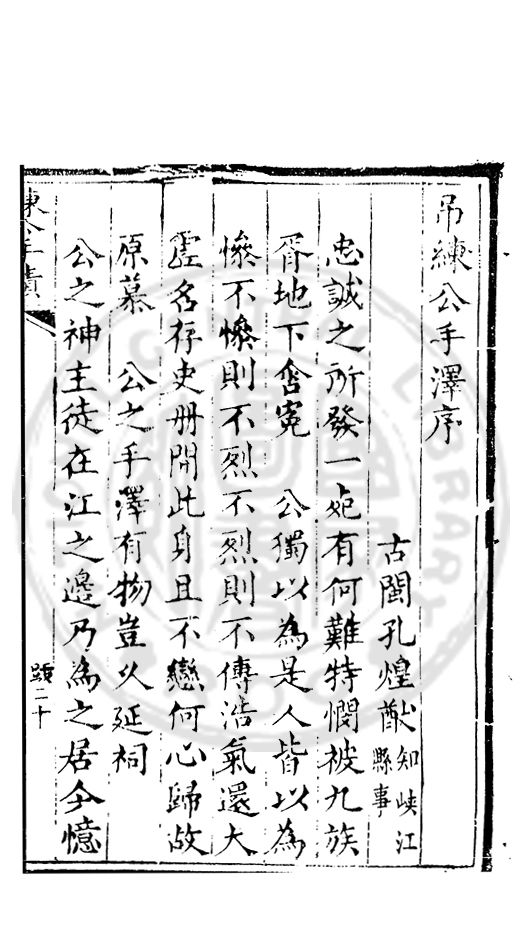 吊練公手澤序
古閩孔煌猷知峽江縣事
忠誠之所發一死有何難特憫被九族
胥地下含寃　公獨以為是人皆以為
慘不慘則不烈不烈則不傳浩氣還大
虛名存史冊間此身且不戀何心歸故
原慕　公之手澤有物豈以延祠
公之神主徒在江之邊乃為之居今憶
號二十